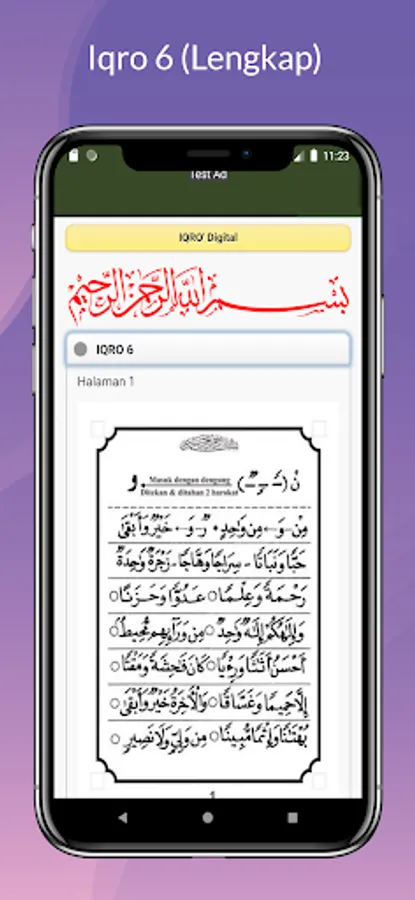 Iqro 6 (Lengkap)
11:23
Test Ad
IQRO' Digital
بِسْمِ اللَّهِ الرَّحْمَنِ الرَّحِيمِ
IQRO 6
Halaman 1
نْ (ــًـ ــٍـ ــٌـ) Masuk dengan dengung و
Ditekan & ditahan 2 harokat
مِنْ - وَ ← مِن وَاحِدٍ • رٌ - وَ ← خَيْرٌ وَأَبْقَىٰ
حَبًّا وَنَبَاتًا - سِرَاجًا وَهَّاجًا - زَجْرَةٌ وَاحِدَةٌ
رَحْمَةً وَعِلْمًا ○ عَدُوًّا وَحَزَنًا ○
وَإِلَٰهُكُمْ إِلَٰهٌ وَاحِدٌ ○ مِن وَرَآئِهِم مُّحِيطٌ ○
أَحْسَنُ أَثَاثًا وَرِءْيًا ○ كَانَ فَاحِشَةً وَمَقْتًا ○
إِلَّا حَمِيمًا وَغَسَّاقًا ○ وَالْآخِرَةُ خَيْرٌ وَأَبْقَىٰ ○
بُهْتَانًا وَإِثْمًا مُّبِينًا ○ مِن وَلِيٍّ وَلَا نَصِيرٍ ○
1